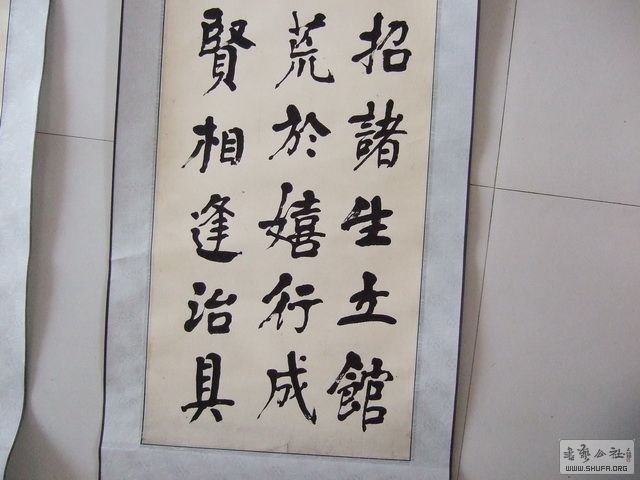 招諸生立館
荒於嬉行成
賢相逢治具
書藝公社
WWW.SHUFA.ORG